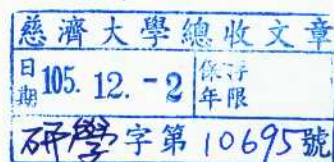 慈濟大學總收文章
日期 105. 12. -2 保存年限
研學字第10695號